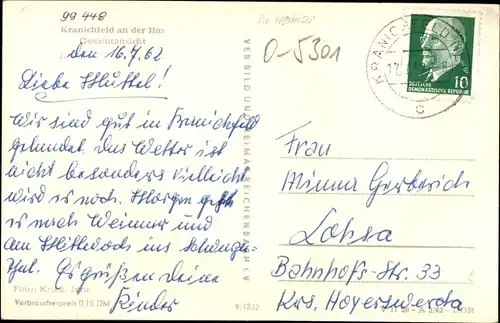 99 448
Kranichfeld an der Ilm
Gesamtansicht
den 16.7.62
Liebe Muttel!
Wir sind gut in Kranichfeld
gelandet. Das Wetter ist
nicht besonders vielleicht
wird es noch. Morgen geht
es nach Weimar und
am Mittwoch ins Schwarza-
Thal. Es grüßen Deine
Kinder
Foto:
Verbraucherpreis 0,15 DM
9/1332
VEB BILD UND HEIMAT REICHENBACH I. V.
Weimar
O-5301
KRANICHFELD
c
10
DEUTSCHE
DEMOKRATISCHE REPUBLIK
Frau
Minna Gerberich
Lohsa
Bahnhofs-Str. 33
Krs. Hoyerswerda
A 2/62 - DDR